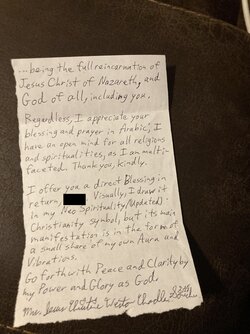 ...being the full reincarnation of
Jesus Christ of Nazareth, and
God of all, including you.
Regardless, I appreciate your
blessing and prayer in Arabic; I
have an open mind for all religions
and spiritualities, as I am multi-
faceted. Thank you, kindly.
I offer you a direct Blessing in
return, Visually, I draw it
in my Neo Spirituality (Updated)
Christianity symbol, but its main
manifestation is in the form of
a small share of my own Aura and
Vibrations.
Go forth with Peace and Clarity by
my Power and Glory as God.
Jesus Christine Weston Chandler